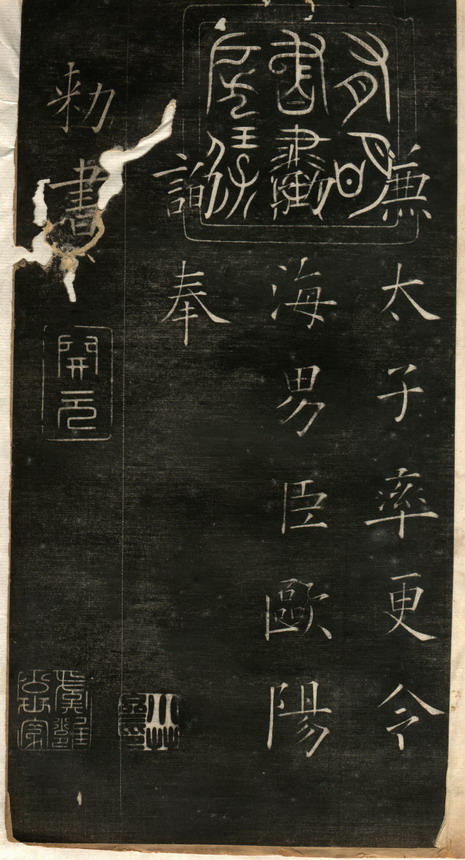 兼太子率更令
海男臣歐陽
詢奉
勑書
開元